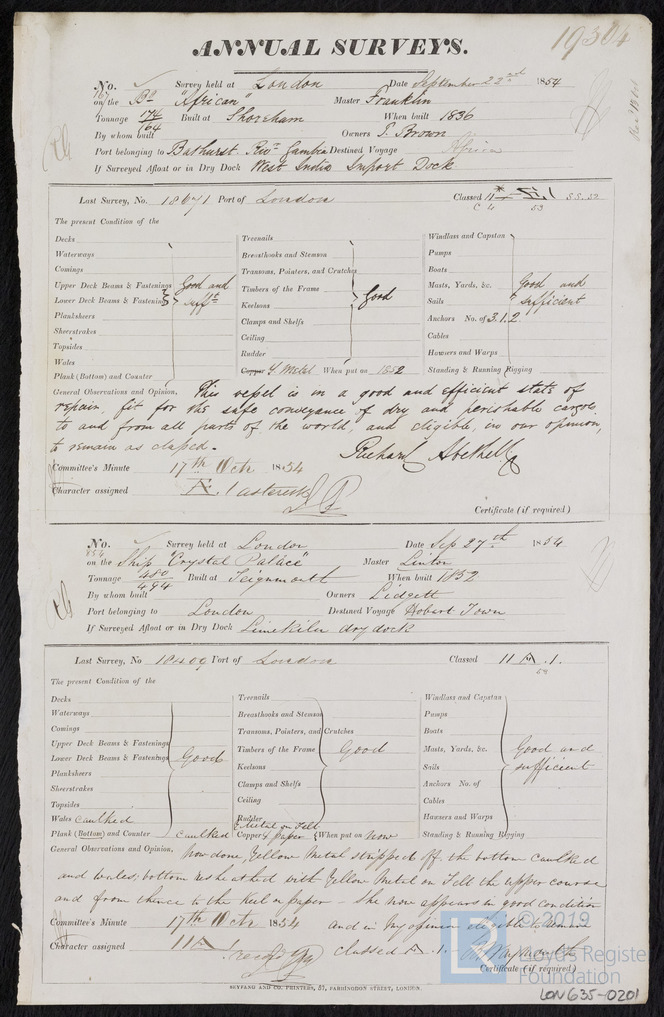 19304
ANNUAL SURVEYS.
No. 167 Survey held at London Date September 22nd 1854
on the Bq "African" Master Franklin
Tonnage 174/164 Built at Shoreham When built 1836
By whom built Owners P. Brown
Port belonging to Bathurst Rivr Gambia Destined Voyage Africa
If Surveyed Afloat or in Dry Dock West India Import Dock
Last Survey, No. 18671 Port of London Classed
The present Condition of the
Decks
Waterways
Comings
Upper Deck Beams & Fastenings Good and
Lower Deck Beams & Fastenings sufft
Plansheers
Sheerstrakes
Topsides
Wales
Plank (Bottom) and Counter
Treenails
Breasthooks and Stemson
Transoms, Pointers, and Crutches
Timbers of the Frame Good
Keelsons
Clamps and Shelfs
Ceiling
Rudder
Copper Y Metal When put on 1852
Windlass and Capstan
Pumps
Boats
Masts, Yards, &c. Good and
Sails sufficient
Anchors No. of 3.1.2
Cables
Hawsers and Warps
Standing & Running Rigging
General Observations and Opinion, This vessel is in a good and efficient state of
repair, fit for the safe conveyance of dry and perishable cargoes,
to and from all parts of the world, and eligible, in our opinion,
to remain as classed.
Richard Abethell
Committee's Minute 17th Octr 1854
Character assigned A.1 asterisk
Certificate (if required)
No. 854 Survey held at London Date Sep 27th 1854
on the Ship "Crystal Palace" Master Linton
Tonnage 480/494 Built at Teignmouth When built 1852
By whom built Owners Lidgett
Port belonging to London Destined Voyage Hobart Town
If Surveyed Afloat or in Dry Dock Limekiln dry dock
Last Survey, No 18409 Port of London Classed 11 A.1.
The present Condition of the
Decks
Waterways
Comings
Upper Deck Beams & Fastenings
Lower Deck Beams & Fastenings Good
Planksheers
Sheerstrakes
Topsides
Wales caulked
Plank (Bottom) and Counter caulked
Treenails
Breasthooks and Stemson
Transoms, Pointers, and Crutches
Timbers of the Frame Good
Keelsons
Clamps and Shelfs
Ceiling
Rudder
Y Metal on Felt
Copper & paper When put on now
Windlass and Capstan
Pumps
Boats
Masts, Yards, &c. Good and
Sails sufficient
Anchors No. of
Cables
Hawsers and Warps
Standing & Running Rigging
General Observations and Opinion, Now done, Yellow Metal stripped off, the bottom caulked
and wales; bottom resheathed with Yellow Metal on Felt the upper course
and from thence to the Keel on paper - She now appears in good condition
and in my opinion eligible to remain
Committee's Minute 17th Octr 1854
classed A.1.
Character assigned 11 A 1
Certificate (if required)
SKYFANG AND CO. PRINTERS, 57, FARRINGDON STREET, LONDON.
© 2019
Lloyd's Register
Foundation
LON635-0201